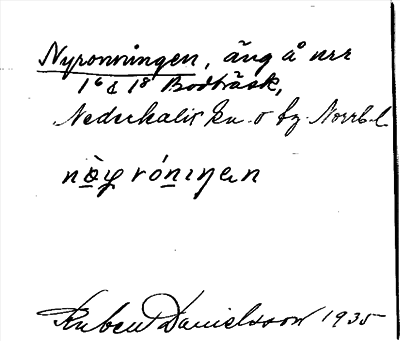 Nyronningen, äng å nrr
16 & 18 Bodträsk,
Nederkalix kn. o by. Norrb. l.
nø̀y rónıŋen
Ruben Danielsson 1935